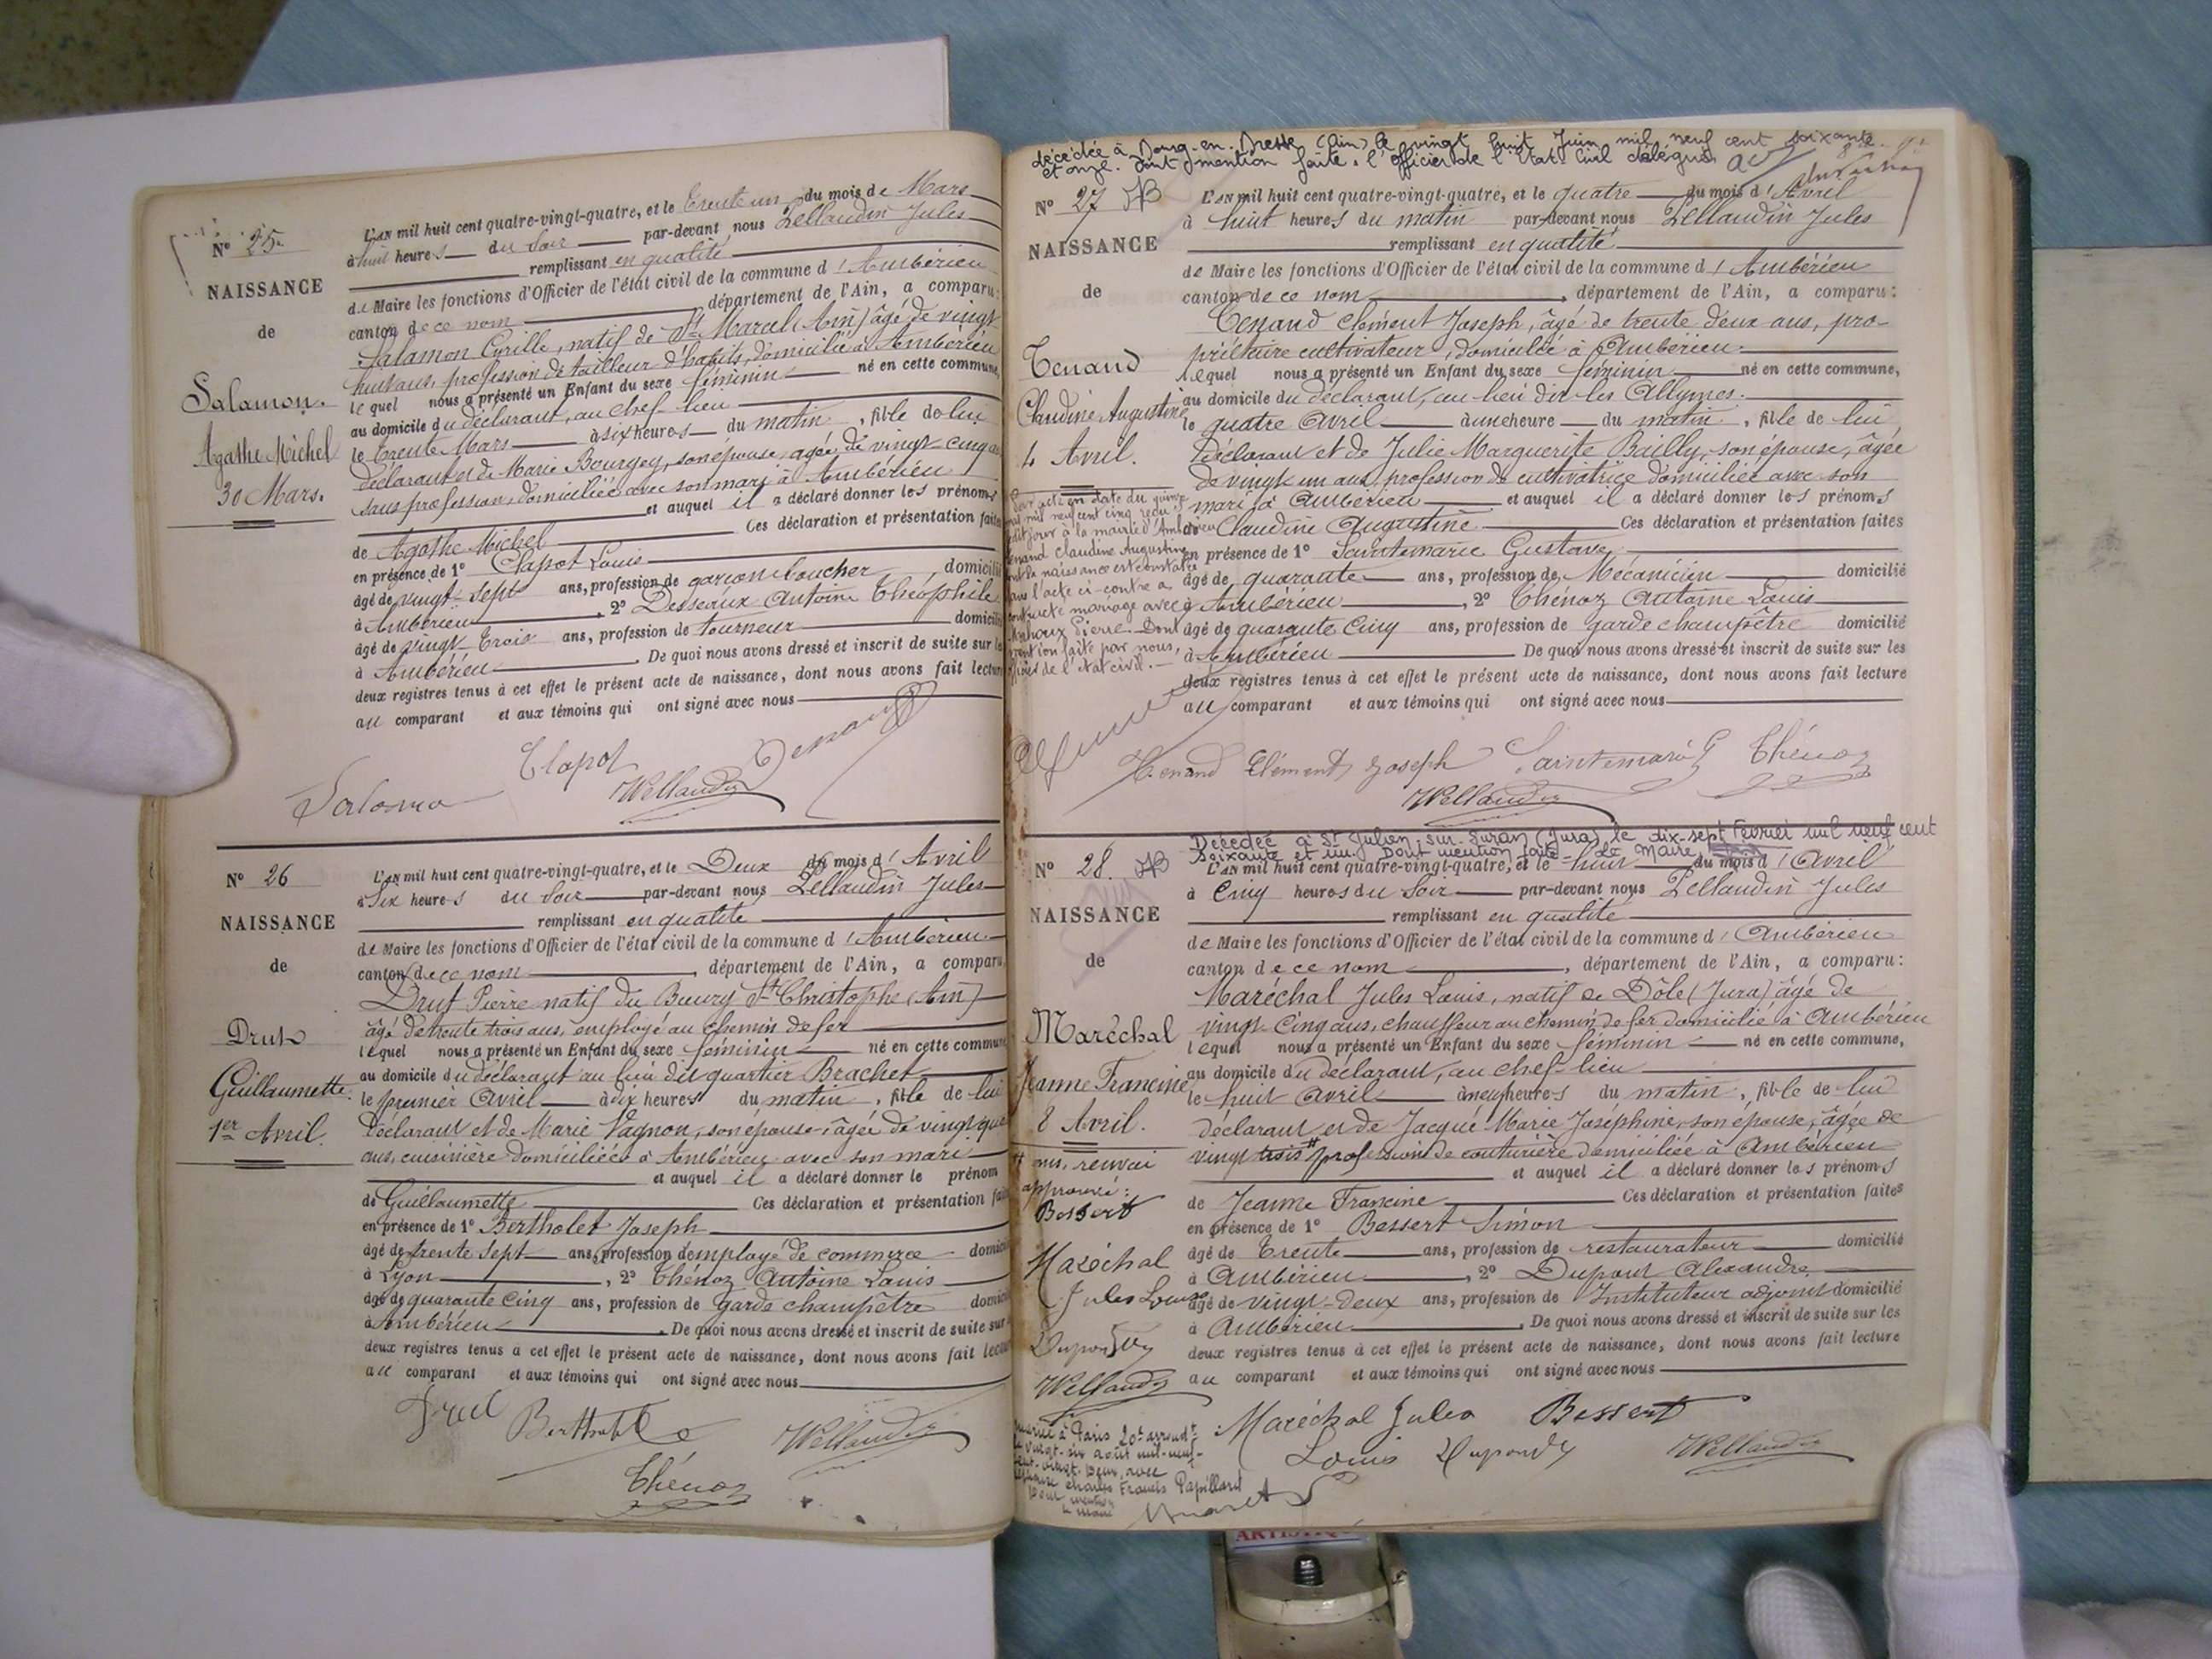 N° 25
NAISSANCE
de
Salamon.
Agathe Michel
30 Mars.
L'AN mil huit cent quatre-vingt-quatre, et le trente un du mois de Mars
à huit heures du soir par-devant nous Pellaudin Jules
remplissant en qualité
de Maire les fonctions d'Officier de l'état civil de la commune d'Ambérieu
canton de ce nom, département de l'Ain, a comparu:
Salamon Cyrille, natif de St Marcel (Ain) âgé de vingt
huit ans, profession de tailleur d'habits, domicilié à Ambérieu
lequel nous a présenté un Enfant du sexe féminin né en cette commune,
au domicile du déclarant, au chef-lieu
le trente Mars à six heures du matin, fille de lui
déclarant et de Marie Bourgey, son épouse, agée de vingt-cinq
sans profession, domiciliée avec son mari à Ambérieu
et auquel il a déclaré donner les prénoms
de Agathe Michel Ces déclaration et présentation faites
en présence de 1° Clapot Louis
âgé de vingt-sept ans, profession de garçon boucher domicilié
à Ambérieu, 2° Desseaux Antoine Théophile
âgé de vingt trois ans, profession de tourneur domicilié
à Ambérieu. De quoi nous avons dressé et inscrit de suite sur les
deux registres tenus à cet effet le présent acte de naissance, dont nous avons fait lecture
au comparant et aux témoins qui ont signé avec nous
Clapot
Salamon
N° 26
NAISSANCE
de
Drut
Guillaumette.
1er Avril.
L'AN mil huit cent quatre-vingt-quatre, et le Deux du mois d'Avril
à Six heures du soir par-devant nous Pellaudin Jules
remplissant en qualité
de Maire les fonctions d'Officier de l'état civil de la commune d'Ambérieu
canton de ce nom, département de l'Ain, a comparu
Drut Pierre natif du Bourg St Christophe (Ain)
âgé de trente trois ans, employé au chemin de fer
lequel nous a présenté un Enfant du sexe féminin né en cette commune
au domicile du déclarant au lieu dit quartier Brachet
le premier Avril à dix heures du matin, fille de lui
déclarant et de Marie Vagnon, son épouse, âgée de vingt
ans, cuisinière domiciliée à Ambérieu avec son mari
et auquel il a déclaré donner le prénom
de Guillaumette Ces déclaration et présentation faites
en présence de 1° Bertholet Joseph
âgé de trente sept ans, profession d'employé de commerce domicilié
à Lyon, 2° Thénoz Antoine Louis
âgé de quarante cinq ans, profession de garde champêtre domicilié
à Ambérieu. De quoi nous avons dressé et inscrit de suite sur
deux registres tenus à cet effet le présent acte de naissance, dont nous avons fait lecture
au comparant et aux témoins qui ont signé avec nous
Drut
Thénoz
décédée à Bourg-en-Bresse (Ain) le vingt huit Juin mil neuf cent soixante
et onze. Dont mention faite. l'officier de l'Etat Civil délégué
N° 27
NAISSANCE
de
Tenand
Claudine Augustine
4 Avril.
L'AN mil huit cent quatre-vingt-quatre, et le quatre du mois d'Avril
à huit heures du matin par-devant nous Pellaudin Jules
remplissant en qualité
de Maire les fonctions d'Officier de l'état civil de la commune d'Ambérieu
canton de ce nom, département de l'Ain, a comparu:
Tenand Clément Joseph, âgé de trente deux ans, pro-
priétaire cultivateur, domicilié à Ambérieu.
lequel nous a présenté un Enfant du sexe féminin né en cette commune,
au domicile du déclarant, au lieu dit les Allymes.
le quatre avril à une heure du matin, fille de lui
déclarant et de Julie Marguerite Bailly, son épouse, âgée
de vingt un ans, profession de cultivatrice domiciliée avec son
mari à Ambérieu et auquel il a déclaré donner les prénoms
de Claudine Augustine Ces déclaration et présentation faites
en présence de 1° Saintemarie Gustave,
âgé de quarante ans, profession de Mécanicien domicilié
à Ambérieu, 2° Thénoz Antoine Louis
âgé de quarante cinq ans, profession de garde champêtre domicilié
à Ambérieu De quoi nous avons dressé et inscrit de suite sur les
deux registres tenus à cet effet le présent acte de naissance, dont nous avons fait lecture
au comparant et aux témoins qui ont signé avec nous
Par acte en date du quinze
mil neuf cent cinq reçu
à la mairie d'Ambérieu
Tenand Claudine Augustine
dont la naissance est constatée
dans l'acte ci-contre a
contracté mariage avec
Pierre. Dont
mention faite par nous,
officier de l'état civil.
Tenand Clément Joseph Saintemarie G Thénoz
Décédée à St Julien-sur-Suran (Jura) le dix-sept Février mil neuf cent
soixante et un. Dont mention faite. Le Maire,
N° 28.
NAISSANCE
de
Maréchal
Jeanne Francine
8 Avril.
L'AN mil huit cent quatre-vingt-quatre, et le huit du mois d'Avril
à Cinq heures du soir par-devant nous Pellaudin Jules
remplissant en qualité
de Maire les fonctions d'Officier de l'état civil de la commune d'Ambérieu
canton de ce nom, département de l'Ain, a comparu:
Maréchal Jules Louis, natif de Dôle (Jura) âgé de
vingt-cinq ans, chauffeur au chemin de fer domicilié à Ambérieu
lequel nous a présenté un Enfant du sexe féminin né en cette commune,
au domicile du déclarant, au chef-lieu
le huit Avril à neuf heures du matin, fille de lui
déclarant et de Jacqué Marie Joséphine, son épouse, âgée de
vingt trois # profession de couturière domiciliée à Ambérieu
et auquel il a déclaré donner les prénoms
de Jeanne Francine Ces déclaration et présentation faites
en présence de 1° Bessert Simon
âgé de trente ans, profession de restaurateur domicilié
à Ambérieu, 2° Dupont Alexandre
âgé de vingt-deux ans, profession de Instituteur adjoint domicilié
à Ambérieu. De quoi nous avons dressé et inscrit de suite sur les
deux registres tenus à cet effet le présent acte de naissance, dont nous avons fait lecture
au comparant et aux témoins qui ont signé avec nous
# ans, renvoi
approuvé:
Bessert
Maréchal
Jules Louis
Mariée à Paris 20e arrondt
le vingt-six août mil-neuf-
cent-vingt-deux, avec
Charles Francis Papillard
Dont mention
le maire
Maréchal Jules Bessert
Louis
ARTISTIQ